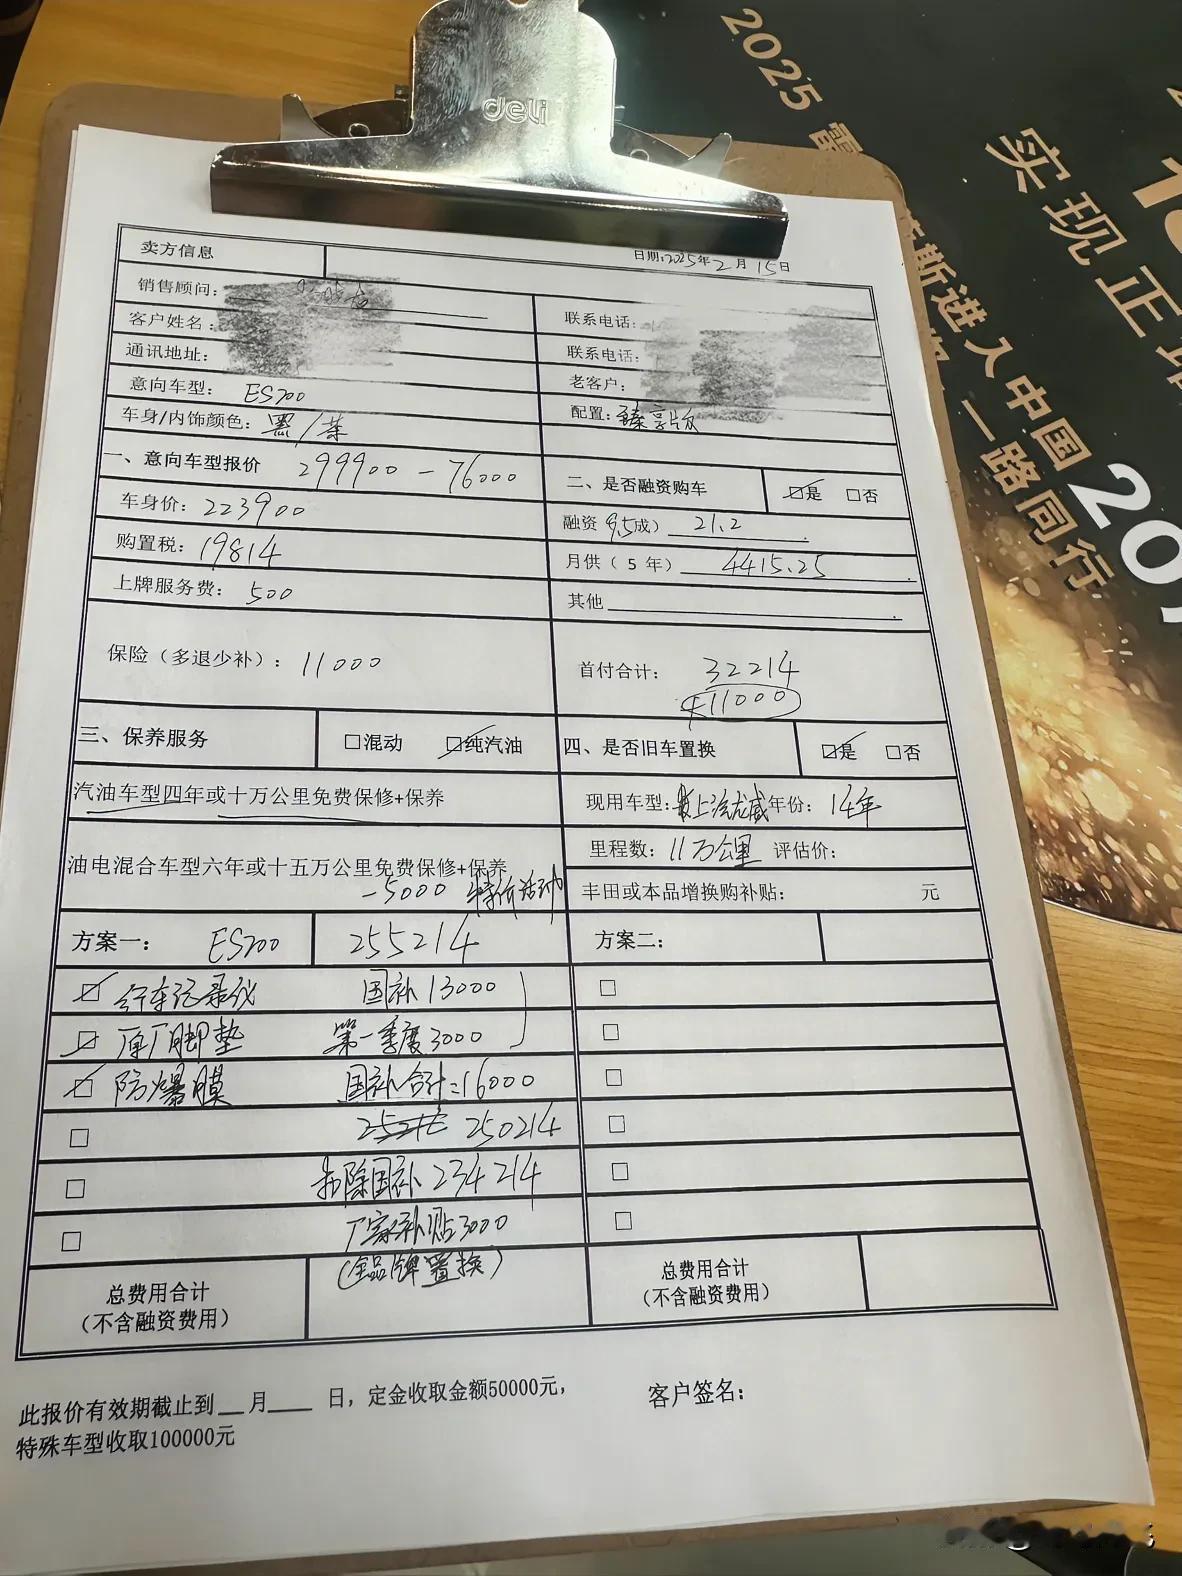 deli
2025 雷
实现正
斯进入中国20
一路同行
日期:2025年2月15日
卖方信息
销售顾问:
联系电话:
客户姓名:
联系电话:
通讯地址:
老客户:
意向车型: ES200
配置: 臻享版
车身/内饰颜色: 黑/茶
一、意向车型报价 299900 - 76000
二、是否融资购车 ☑是 □否
车身价: 223900
融资 9.5成) 21.2
购置税: 19814
月供( 5 年) 4415.25
上牌服务费: 500
其他
保险(多退少补): 11000
首付合计: 32214
+11000
三、保养服务 □混动 ☑纯汽油
四、是否旧车置换 ☑是 □否
汽油车型四年或十万公里免费保修+保养
现用车型: 上汽龙威 年份: 14年
里程数: 11万公里 评估价:
油电混合车型六年或十五万公里免费保修+保养
-5000 特价活动
丰田或本品增换购补贴: 元
方案一: ES200 255214
方案二:
☑ 行车记录仪 国补13000
☑ 原厂脚垫 第一季度3000
☑ 防爆膜 国补合计=16000
250214
扣除国补 234214
厂家补贴3000
(全品牌置换)
总费用合计
(不含融资费用)
总费用合计
(不含融资费用)
此报价有效期截止到__月____ 日，定金收取金额50000元，
特殊车型收取100000元
客户签名: